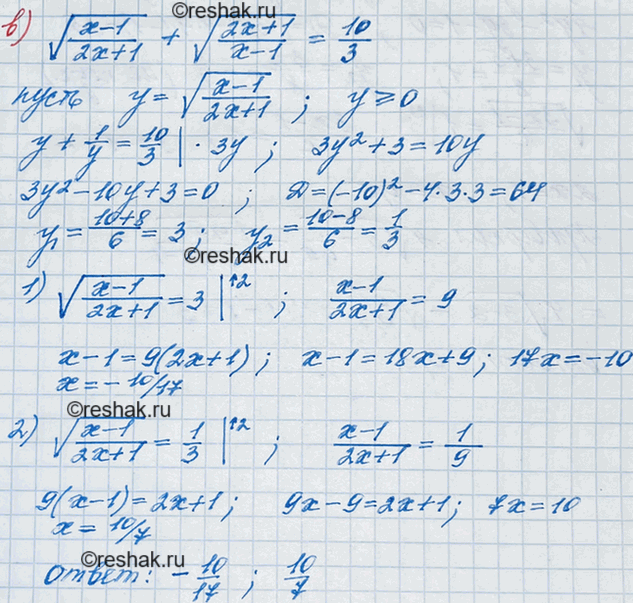 ©reshak.ru
в) √((x-1)/(2x+1)) + √((2x+1)/(x-1)) = 10/3
пусть y = √((x-1)/(2x+1)) ; y ≥ 0
y + 1/y = 10/3 | · 3y ; 3y² + 3 = 10y
3y² - 10y + 3 = 0 ; D = (-10)² - 4·3·3 = 64
y₁ = (10+8)/6 = 3 ; y₂ = (10-8)/6 = 1/3
©reshak.ru
1) √((x-1)/(2x+1)) = 3 |↑2 ; (x-1)/(2x+1) = 9
x-1 = 9(2x+1) ; x-1 = 18x+9 ; 17x = -10
x = -10/17
©reshak.ru
2) √((x-1)/(2x+1)) = 1/3 |↑2 ; (x-1)/(2x+1) = 1/9
9(x-1) = 2x+1 ; 9x-9 = 2x+1 ; 7x = 10
x = 10/7
©reshak.ru
Ответ: -10/17 ; 10/7